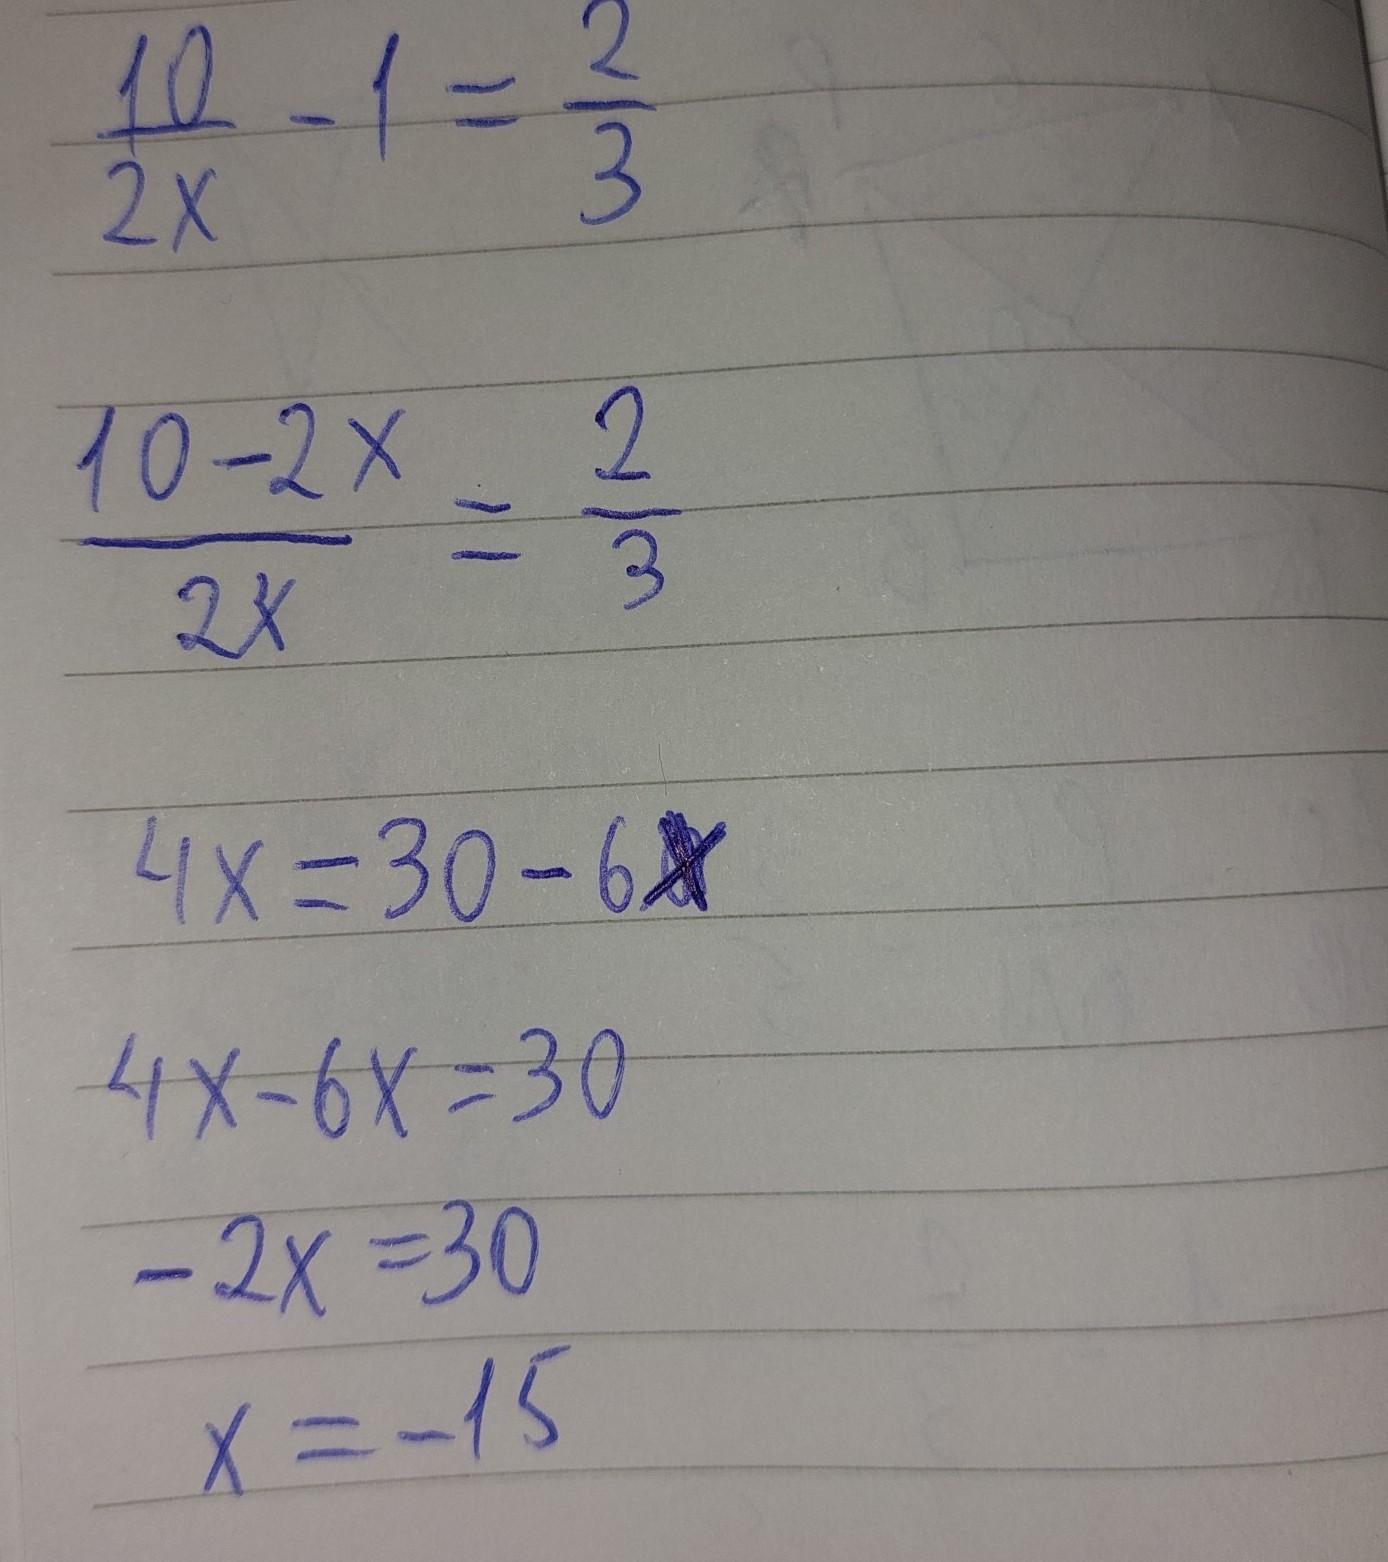 10/2x - 1 = 2/3
(10-2x)/2x = 2/3
4x = 30 - 6x
4x - 6x = 30
-2x = 30
x = -15